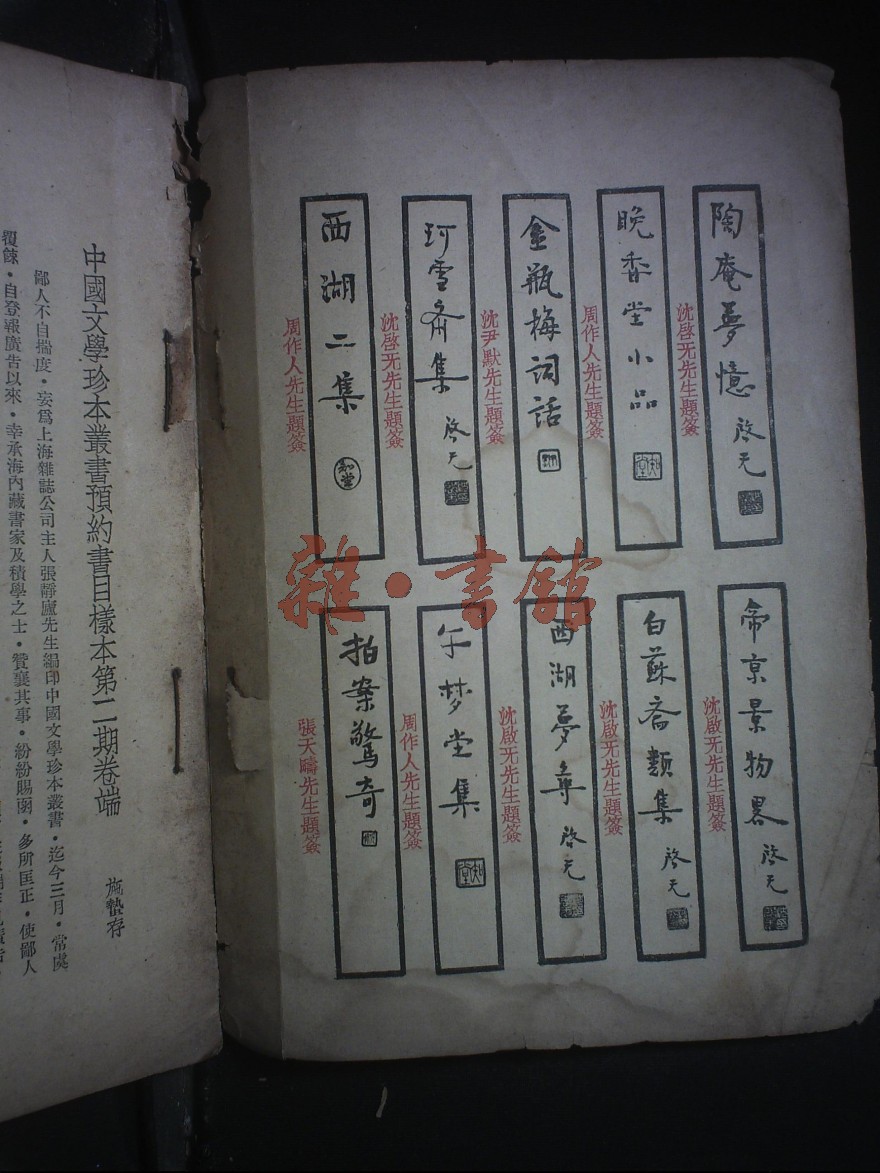 陶庵夢憶 啓无
沈啓无先生題簽
晚香堂小品
知堂
周作人先生題簽
金瓶梅詞話
沈尹默先生題簽
珂雪齋集 啓无
沈啓无先生題簽
西湖二集
知堂
周作人先生題簽
帝京景物畧 啓无
沈啟无先生題簽
白蘇齋類集 啓无
沈啟无先生題簽
西湖夢尋 啓无
沈啟无先生題簽
午梦堂集
知堂
周作人先生題簽
拍案驚奇
張天疇先生題簽
雜·書館
中國文學珍本叢書預約書目樣本第二期卷端 施蟄存
鄙人不自揣度·妄爲上海雜誌公司主人張靜廬先生編印中國文學珍本叢書·迄今三月·常處
覆餗·自登報廣告以來·幸承海內藏書家及積學之士·贊襄其事·紛紛賜函·多所匡正·使鄙人